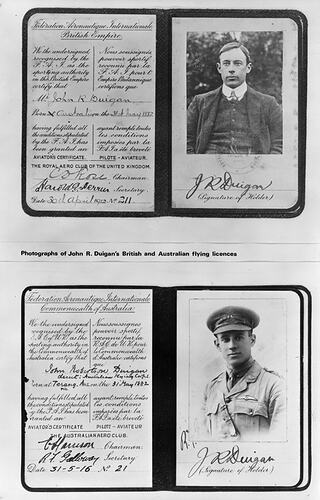 Fédération Aéronautique Internationale
British Empire
We the undersigned
recognised by the
F.A.I. as the
sporting authority
in the British Empire
certify that
Nous soussignés
pouvoir sportif
reconnu par la
F.A.I. pour l'
Empire Britannique
certifions que
Mr John R Duigan
Born Australia on the 31st May 1882
having fulfilled all
the conditions stipulated
by the F.A.I. has
been granted an
ayant rempli toutes
les conditions
imposées par la
F.A.I. a été breveté
AVIATOR'S CERTIFICATE
PILOTE - AVIATEUR.
THE ROYAL AERO CLUB OF THE UNITED KINGDOM.
Chairman
Harold E Perrin Secretary.
Date 30th April 1912 No 211.
J R Duigan
(Signature of Holder)
Photographs of John R. Duigan's British and Australian flying licences
Fédération Aéronautique Internationale
Commonwealth of Australia
We the undersigned
recognised by the
sporting authority in
the Commonwealth
of Australia certify
that
Nous soussignés
pouvoir sportif
reconnu par le
pour le
Commonwealth
d'Australie certifions
que
John Robertson Duigan
Lieut: Australian Flying Corps
Born at Terang, Vic. on the 31 May 1882
having fulfilled all
the conditions stipulated
by the F.A.I. has been
granted an
ayant rempli toutes
les conditions
imposées par la
F.A.I. a été breveté
AVIATOR'S CERTIFICATE
PILOTE - AVIATEUR
THE AUSTRALIAN AERO CLUB.
Harrison Chairman.
Galloway Secretary
Date 31-5-16 No 21
J R Duigan
(Signature of Holder)